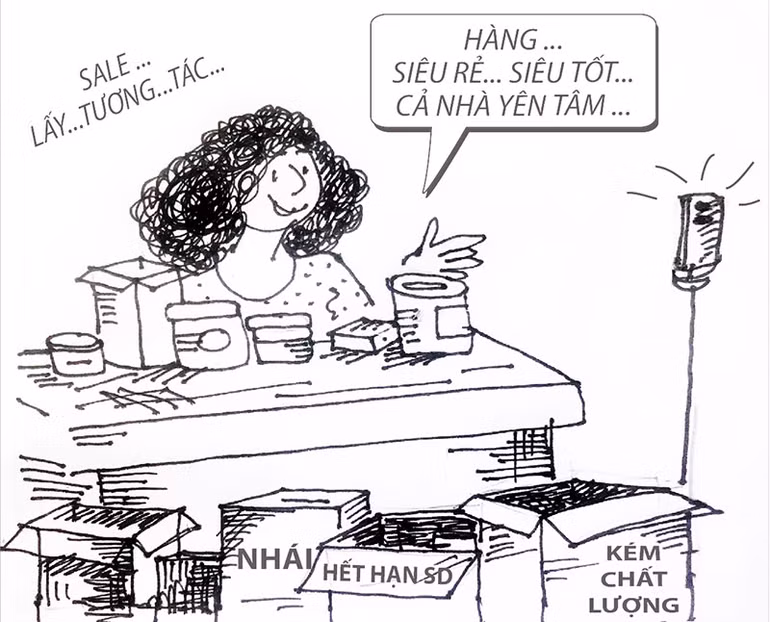 SALE ...
LẤY...TƯƠNG...TÁC...
HÀNG ...
SIÊU RẺ... SIÊU TỐT...
CẢ NHÀ YÊN TÂM ...
NHÁI
HẾT HẠN SD
KÉM
CHẤT
LƯỢNG